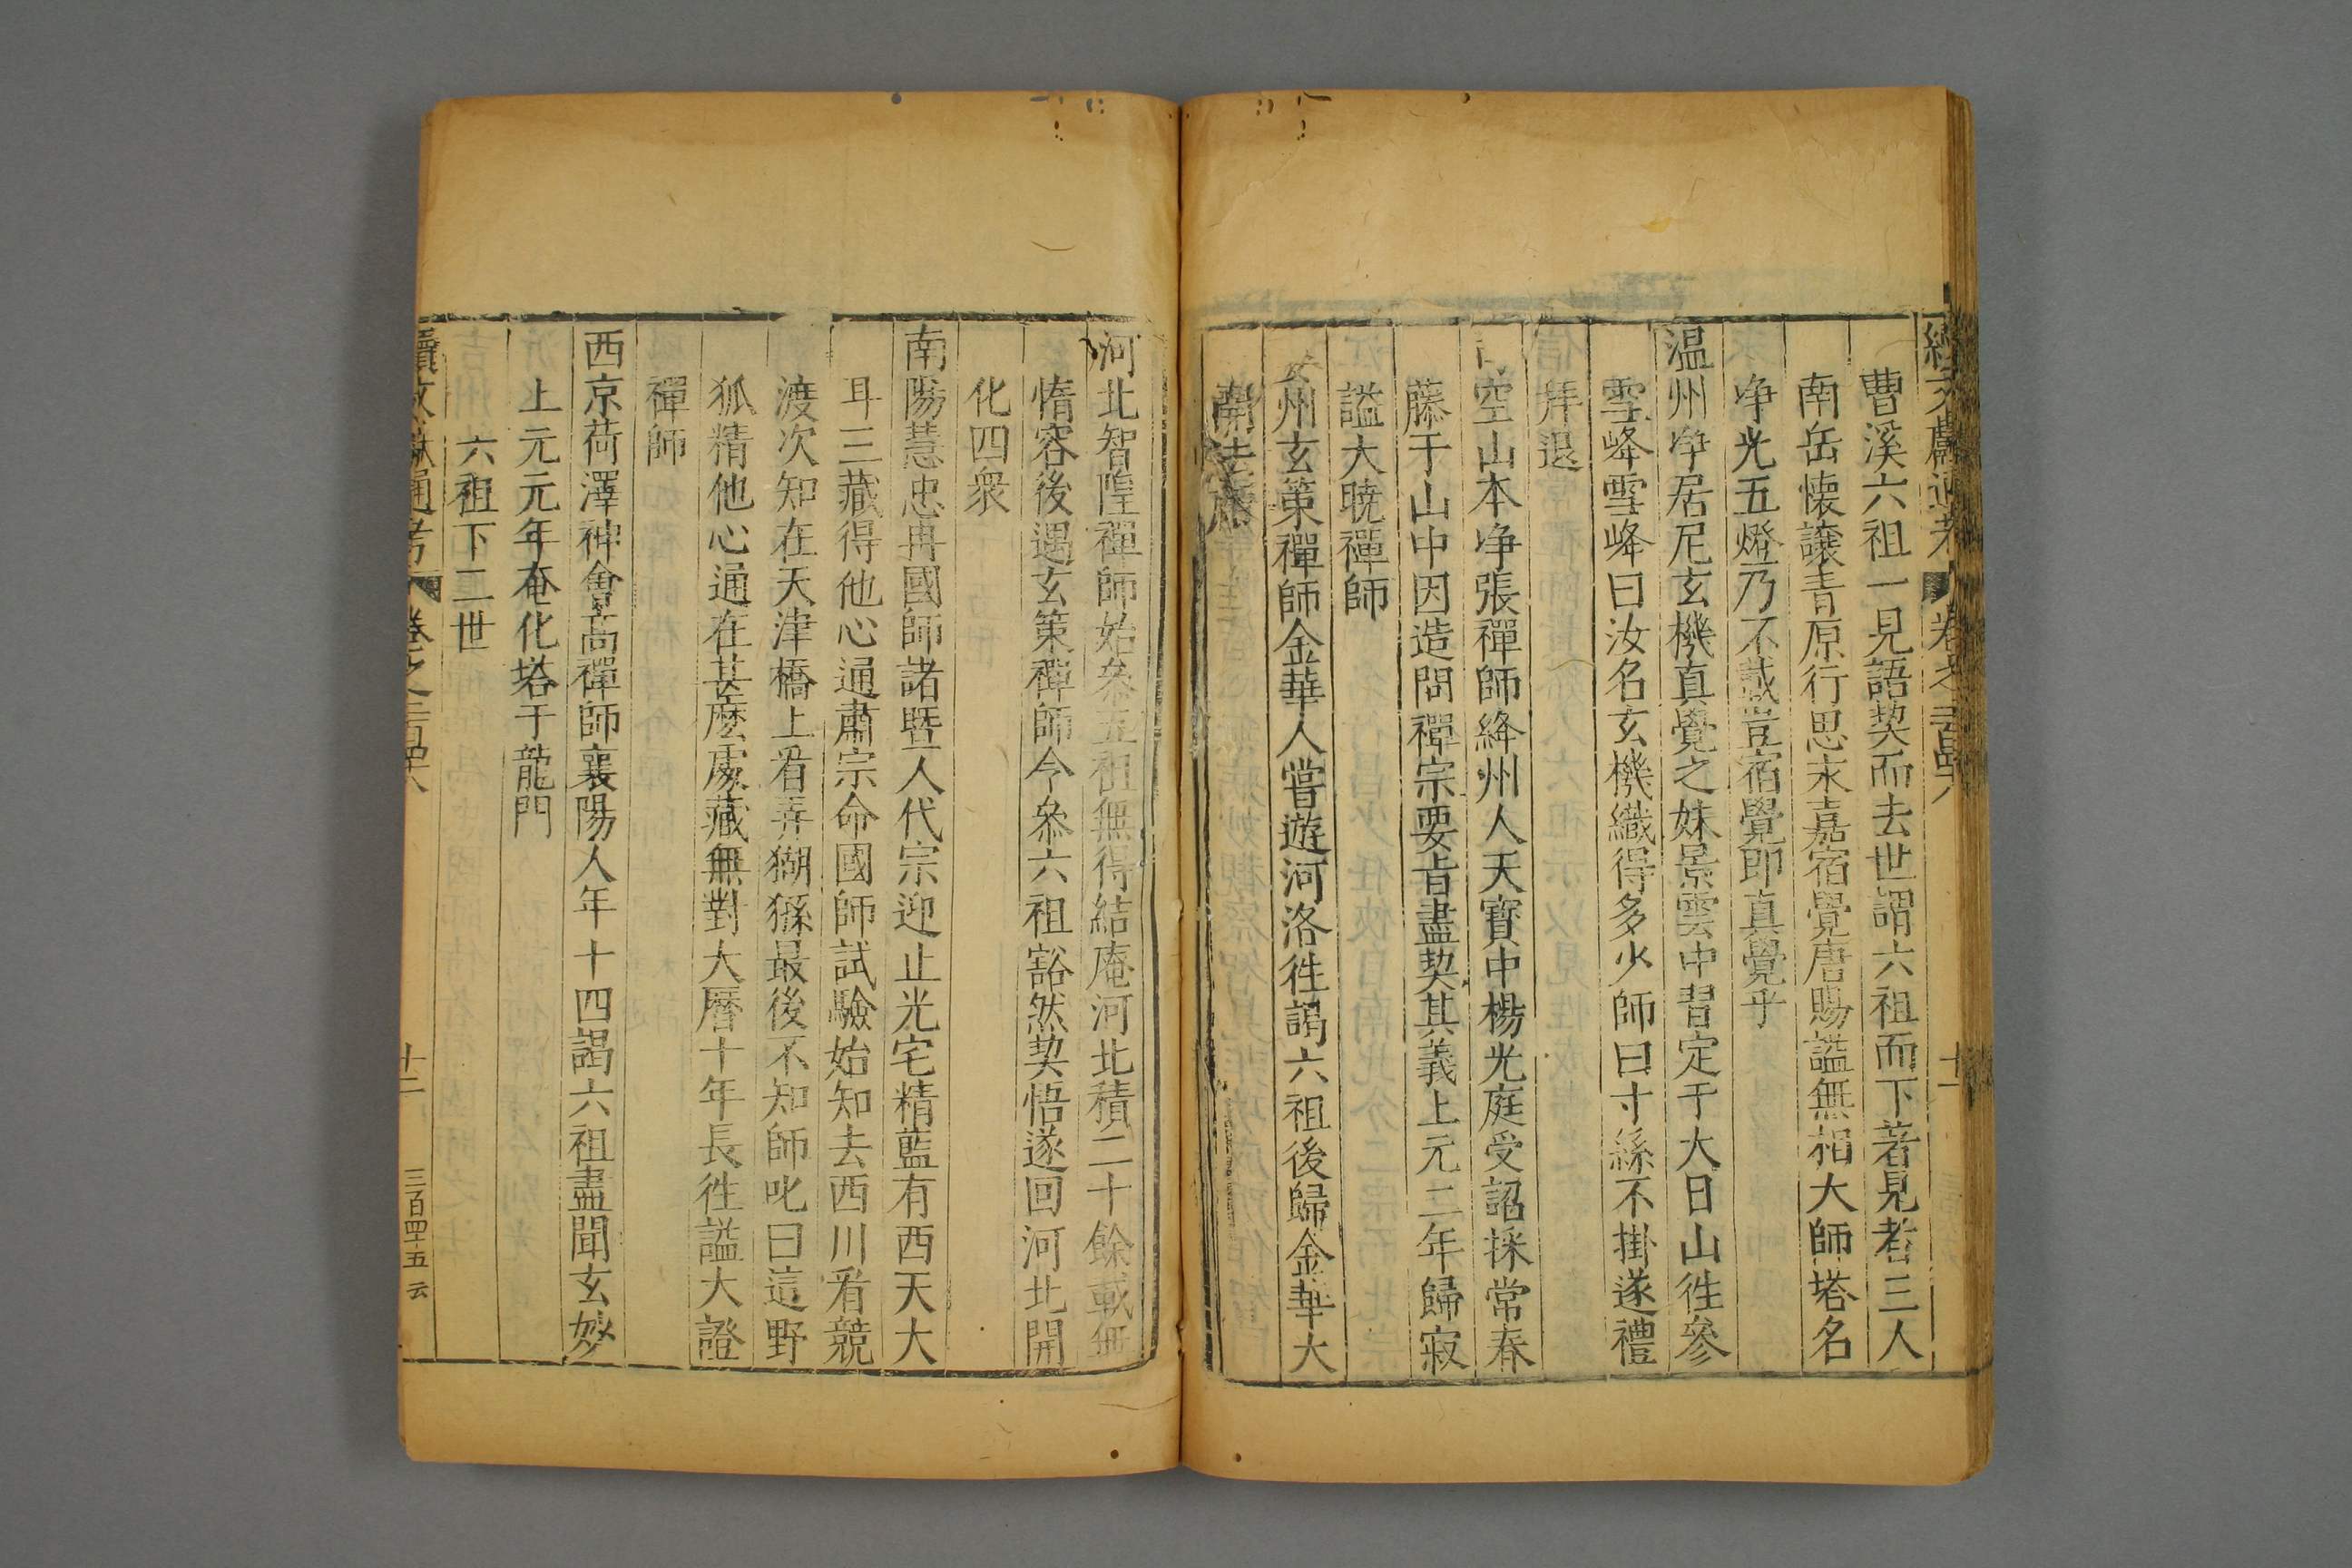 續文獻通考 卷之二百四 十一
曹溪六祖一見語契而去世謂六祖而下著見者三人
南岳懷讓青原行思永嘉宿覺唐賜謚無相大師塔名
净光五燈乃不載豈宿覺即真覺乎
温州净居尼玄機真覺之妹景雲中習定于大日山徃參
雪峰雪峰曰汝名玄機織得多少師曰寸絲不掛遂禮
拜退
空山本净張禪師絳州人天寶中楊光庭受詔採常春
藤于山中因造問禪宗要旨盡契其義上元二年歸寂
謚大曉禪師
州玄策禪師金華人嘗遊河洛徃謁六祖後歸金華大
開法
河北智隍禪師始叅五祖無得結庵河北積二十餘載無
惰容後遇玄策禪師令叅六祖豁然契悟遂回河北開
化四衆
南陽慧忠冉國師諸暨人代宗迎止光宅精藍有西天大
耳三藏得他心通肅宗命國師試驗始知去西川看競
渡次知在天津橋上看弄猢猻最後不知師叱曰這野
狐精他心通在甚麽處藏無對大曆十年長徃謚大證
禪師
西京荷澤神會高禪師襄陽人年十四謁六祖盡聞玄妙
上元元年奄化塔于龍門
六祖下二世
續文獻通考 卷之二百四 十二 三百四十五 云